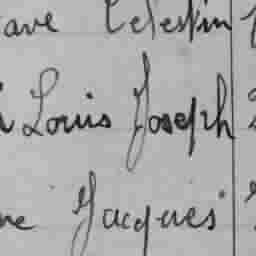 ave Celestin
Louis Joseph
Jacques